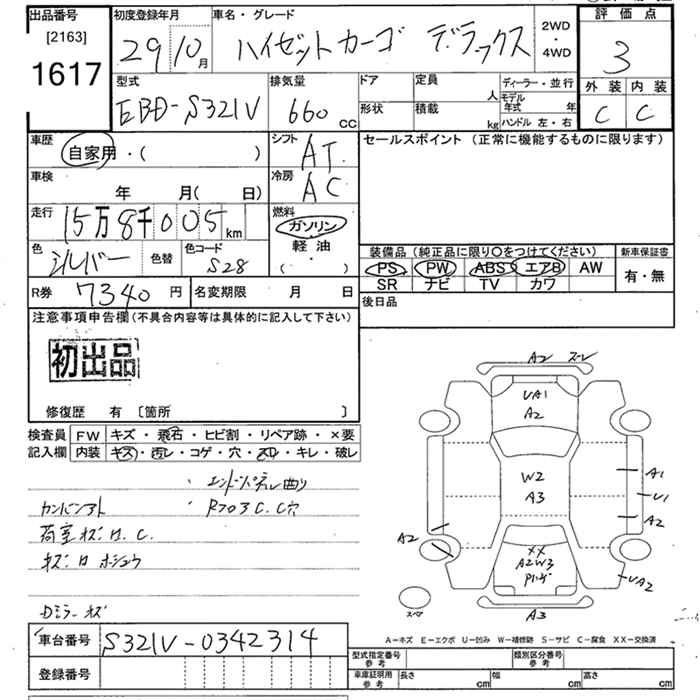 出品番号
[2163]
1617
初度登録年月
29 10月
車名・グレード
ハイゼットカーゴ デラックス
2WD
・
4WD
評価点
3
外装 内装
C C
型式
EBD-S321V
排気量
660 CC
ドア
形状
定員 人
積載 kg
ディーラー・並行
モデル年式 年
ハンドル 左・右
車歴
自家用・( )
シフト
AT
セールスポイント (正常に機能するものに限ります)
車検
年 月( 日)
冷房
AC
走行
15万8千005 km
燃料
ガソリン
軽油
( ・ )
色
シルバー
色替
色コード
S28
装備品 (純正品に限り〇をつけてください)
PS PW ABS エアB AW
SR ナビ TV カワ
新車保証書
有・無
R券 7340 円
名変期限 月 日
後日品
注意事項申告欄(不具合内容等は具体的に記入して下さい)
初出品
修復歴 有 [箇所 ]
検査員記入欄
FW キズ・飛石・ヒビ割・リペア跡・×要
内装 キズ・汚レ・コゲ・穴・スレ・キレ・破レ
・エンドパネル曲り
カンバンアト
・Rフロア C.C穴
荷室キズ.H.C.
キズ.H ホシュウ
Dミラーキズ
車台番号 S321V-0342314
登録番号
A2 スーレ
UA1
A2
W2
A3
A1
U1
A2
UA2
A2
XX
A2W3
スペア
A3
A-キズ E-エクボ U-凹み W-補修跡 S-サビ C-腐食 XX-交換済
型式指定番号
参考
類別区分番号
参考
車庫証明用
参考
長さ cm 幅 cm 高さ cm